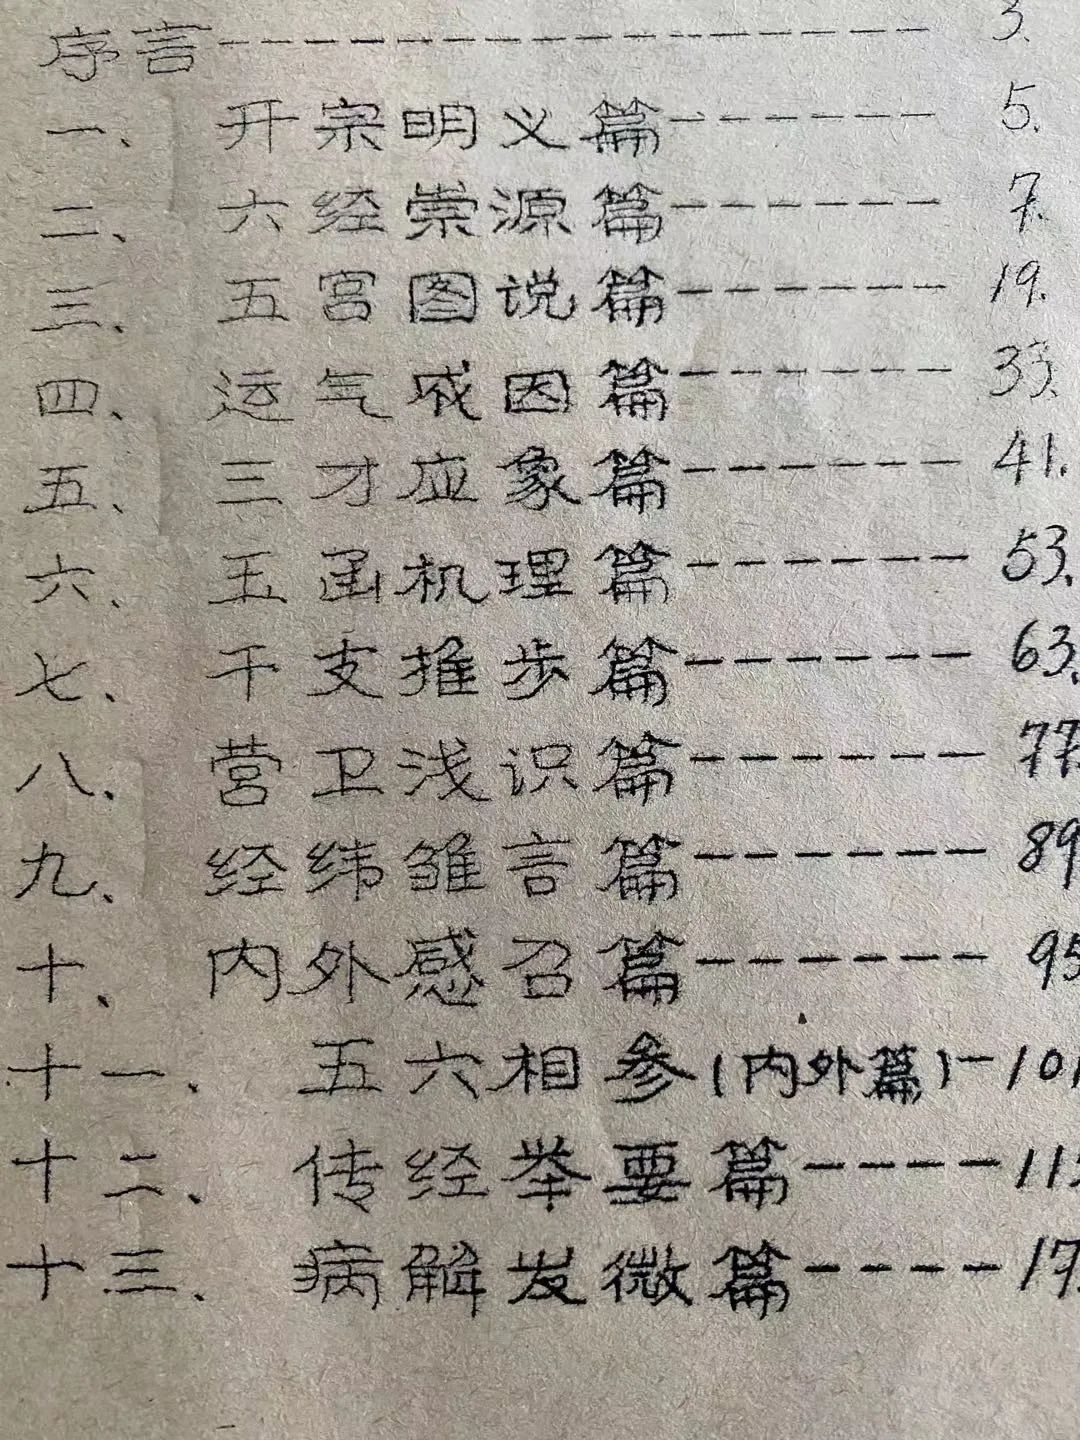 序言---------------- 3.
一、 开宗明义篇------ 5.
二、 六经崇源篇------ 7.
三、 五宫图说篇------ 19.
四、 运气成因篇------ 33.
五、 三才应象篇------ 41.
六、 玉函机理篇------ 53.
七、 干支推步篇------ 63.
八、 营卫浅识篇------ 77.
九、 经纬雏言篇------ 89
十、 内外感召篇------ 95
十一、 五六相参(内外篇)-101
十二、 传经举要篇----
十三、 病解发微篇----